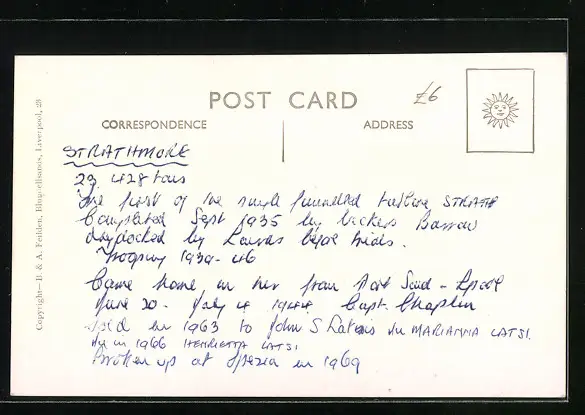 POST CARD
£6
CORRESPONDENCE
ADDRESS
STRATHMORE
23,428 tons
The first of the single funnelled turbine STRATH
Completed Sept 1935 by Vickers Barrow
drydocked by before trials.
Trooping 1939-46
Came home in her from Port Said -
June 20 - July 4 1944 Capt. Chaplin
Sold in 1963 to John S Latsis MARIANNA LATSI.
in 1966 HENRIETTA LATSI
Broken up at Spezia in 1969
Copyright—B. & A. Feilden, Blundellsands, Liverpool, 23